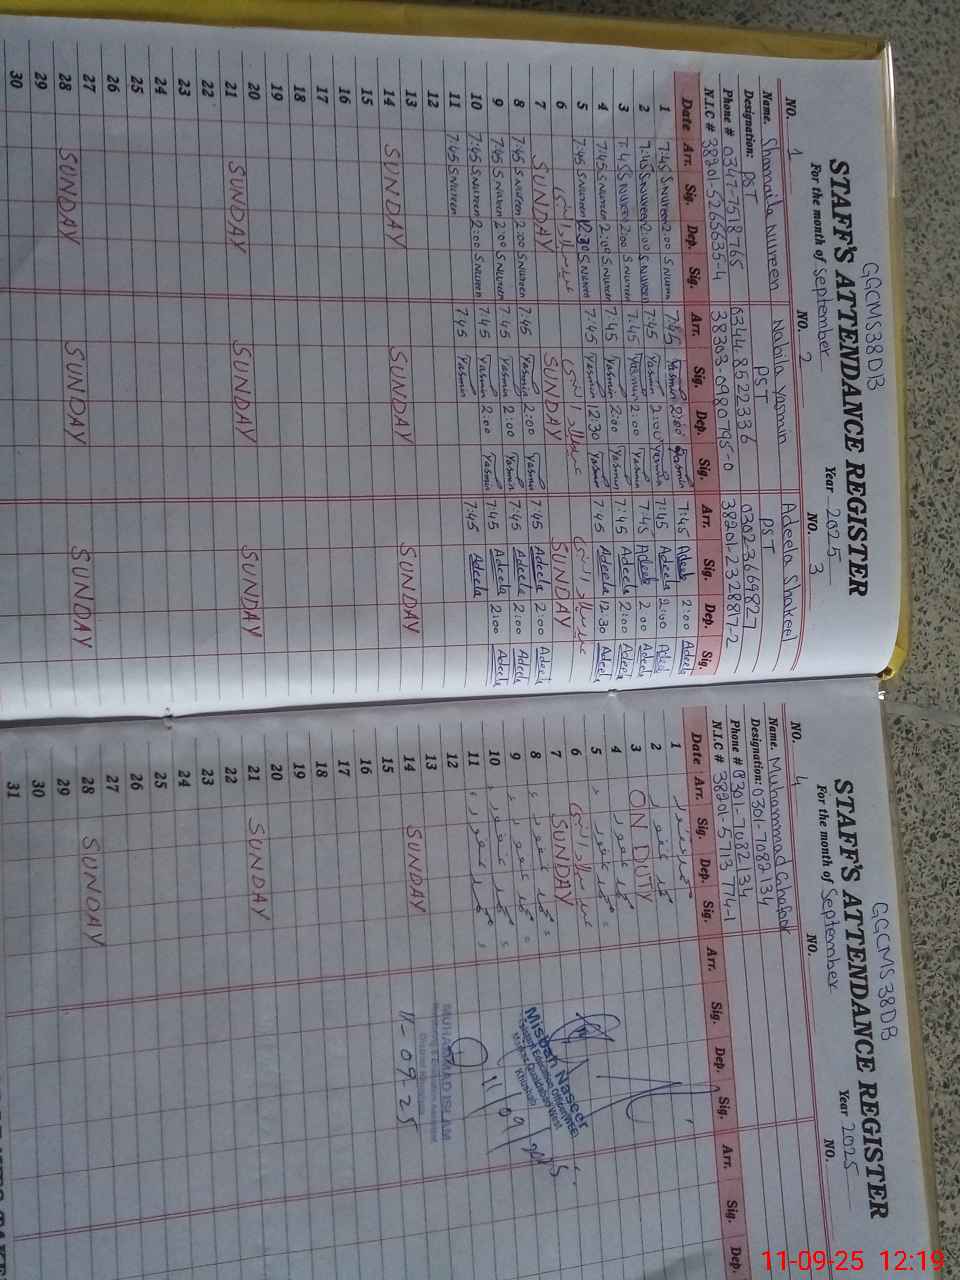 GGCMS38DB
STAFF'S ATTENDANCE REGISTER
For the month of September Year 2025
NO. 1 NO. 2 NO. 3
Name. Shamaila Nureen Nabila Yasmin Adeela Shakeel
Designation: PST PST PST
Phone # 0347-7518765 0344-8522336 03023669827
N.I.C # 38201-5266635-4 38303-0980795-0 38201-2328817-2
Date Arr. Sig. Dep. Sig. Arr. Sig. Dep. Sig. Arr. Sig. Dep. Sig.
1 7:45 S.Nureen 2:00 S.Nureen 7:45 Yasmin 2:00 Yasmin 7:45 Adeela 2:00 Adeela
2 7:45 S.Nureen 2:00 S.Nureen 7:45 Yasmin 2:00 Yasmin 7:45 Adeela 2:00 Adeela
3 7:45 S.Nureen 2:00 S.Nureen 7:45 Yasmin 2:00 Yasmin 7:45 Adeela 2:00 Adeela
4 7:45 S.Nureen 2:00 S.Nureen 7:45 Yasmin 2:00 Yasmin 7:45 Adeela 2:00 Adeela
5 7:45 S.Nureen 12:30 S.Nureen 7:45 Yasmin 12:30 Yasmin 7:45 Adeela 12:30 Adeela
6
7 SUNDAY SUNDAY SUNDAY
8 7:45 S.Nureen 2:00 S.Nureen 7:45 Yasmin 2:00 Yasmin 7:45 Adeela 2:00 Adeela
9 7:45 S.Nureen 2:00 S.Nureen 7:45 Yasmin 2:00 Yasmin 7:45 Adeela 2:00 Adeela
10 7:45 S.Nureen 2:00 S.Nureen 7:45 Yasmin 2:00 Yasmin 7:45 Adeela 2:00 Adeela
11 7:45 S.Nureen 7:45 Yasmin 7:45 Adeela
12
13
14 SUNDAY SUNDAY SUNDAY
15
16
17
18
19
20
21 SUNDAY SUNDAY SUNDAY
22
23
24
25
26
27
28 SUNDAY SUNDAY SUNDAY
29
30
GGCMS38DB
STAFF'S ATTENDANCE REGISTER
For the month of September Year 2025
NO. 4 NO. NO.
Name. Muhammad Ghafoor
Designation: 0301-7082134
Phone # 0301-7082134
N.I.C # 38201-5713774-1
Date Arr. Sig. Dep. Sig. Arr. Sig. Dep. Sig. Arr. Sig. Dep.
1
2
3 ON DUTY
4
5
6
7 SUNDAY
8
9
10
11
12
13
14 SUNDAY
15
16
17
18
19
20
21 SUNDAY
22
23
24
25
26
27
28 SUNDAY
29
30
31
Misbah Naseer
Khushab
11/09/2025
MUHAMMAD ISLAM
11-09-25
11-09-25 12:19